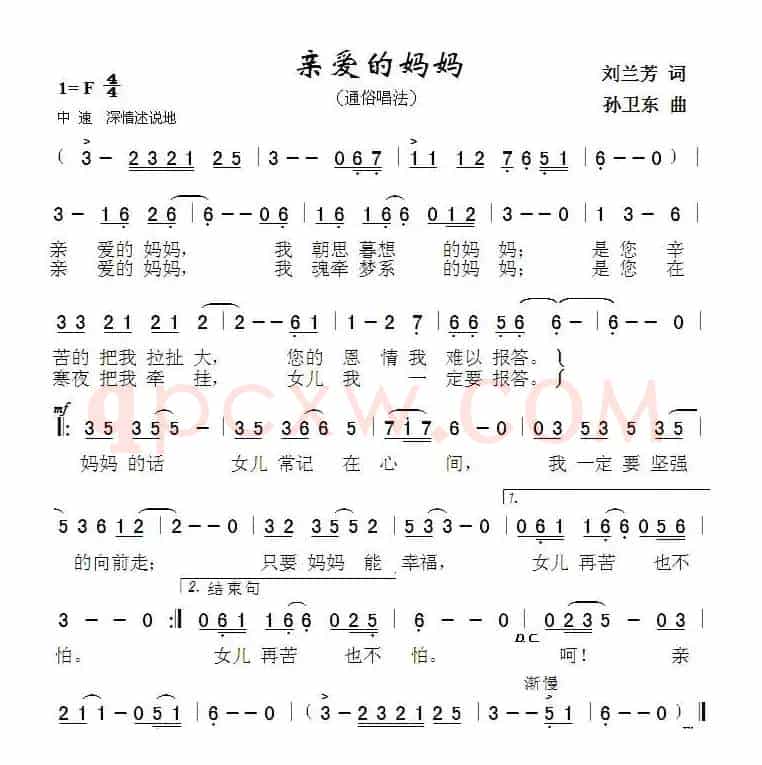 亲爱的妈妈
1=F 4/4
(通俗唱法)
刘兰芳 词
中 速 深情述说地
孙卫东 曲
( 3 - 2321 25 | 3 - - 067 | 11 12 7651 | 6 - - 0 ) |
3 - 16 26 | 6 - - 06 | 16 166 012 | 3 - - 0 | 1 3 - 6
亲 爱的 妈妈, 我 朝思暮想 的妈 妈; 是 您 辛
亲 爱的 妈妈, 我 魂牵梦系 的妈 妈; 是 您 在
33 21 21 2 | 2 - - 61 | 1 - 2 7 | 66 56 6 - | 6 - - 0
苦的 把我 拉扯 大, 您的 恩 情 我 难以 报答。
寒夜 把我 牵 挂, 女儿 我 一 定要 报答。
mf
‖: 35 355 - | 35 366 5 | 717 6 - 0 | 03 53 5 35
妈妈 的话 女儿 常记 在 心 间, 我 一定 要 坚强
1.
53612 | 2 - - 0 | 32 355 2 | 533 - 0 | 061 166 056
的向前走; 只要 妈妈 能 幸福, 女儿 再苦 也不
2. 结束句
3 - - 0 :‖ 061 166 025 | 6 - - 0 | 0235 - 03
D.C.
怕。 女儿 再苦 也不 怕。 呵! 亲
渐慢
211 - 051 | 6 - - 0 | ( 3 - 2321 25 | 3 - - 51 | 6 - - 0 ) ‖
qpcxw.COM